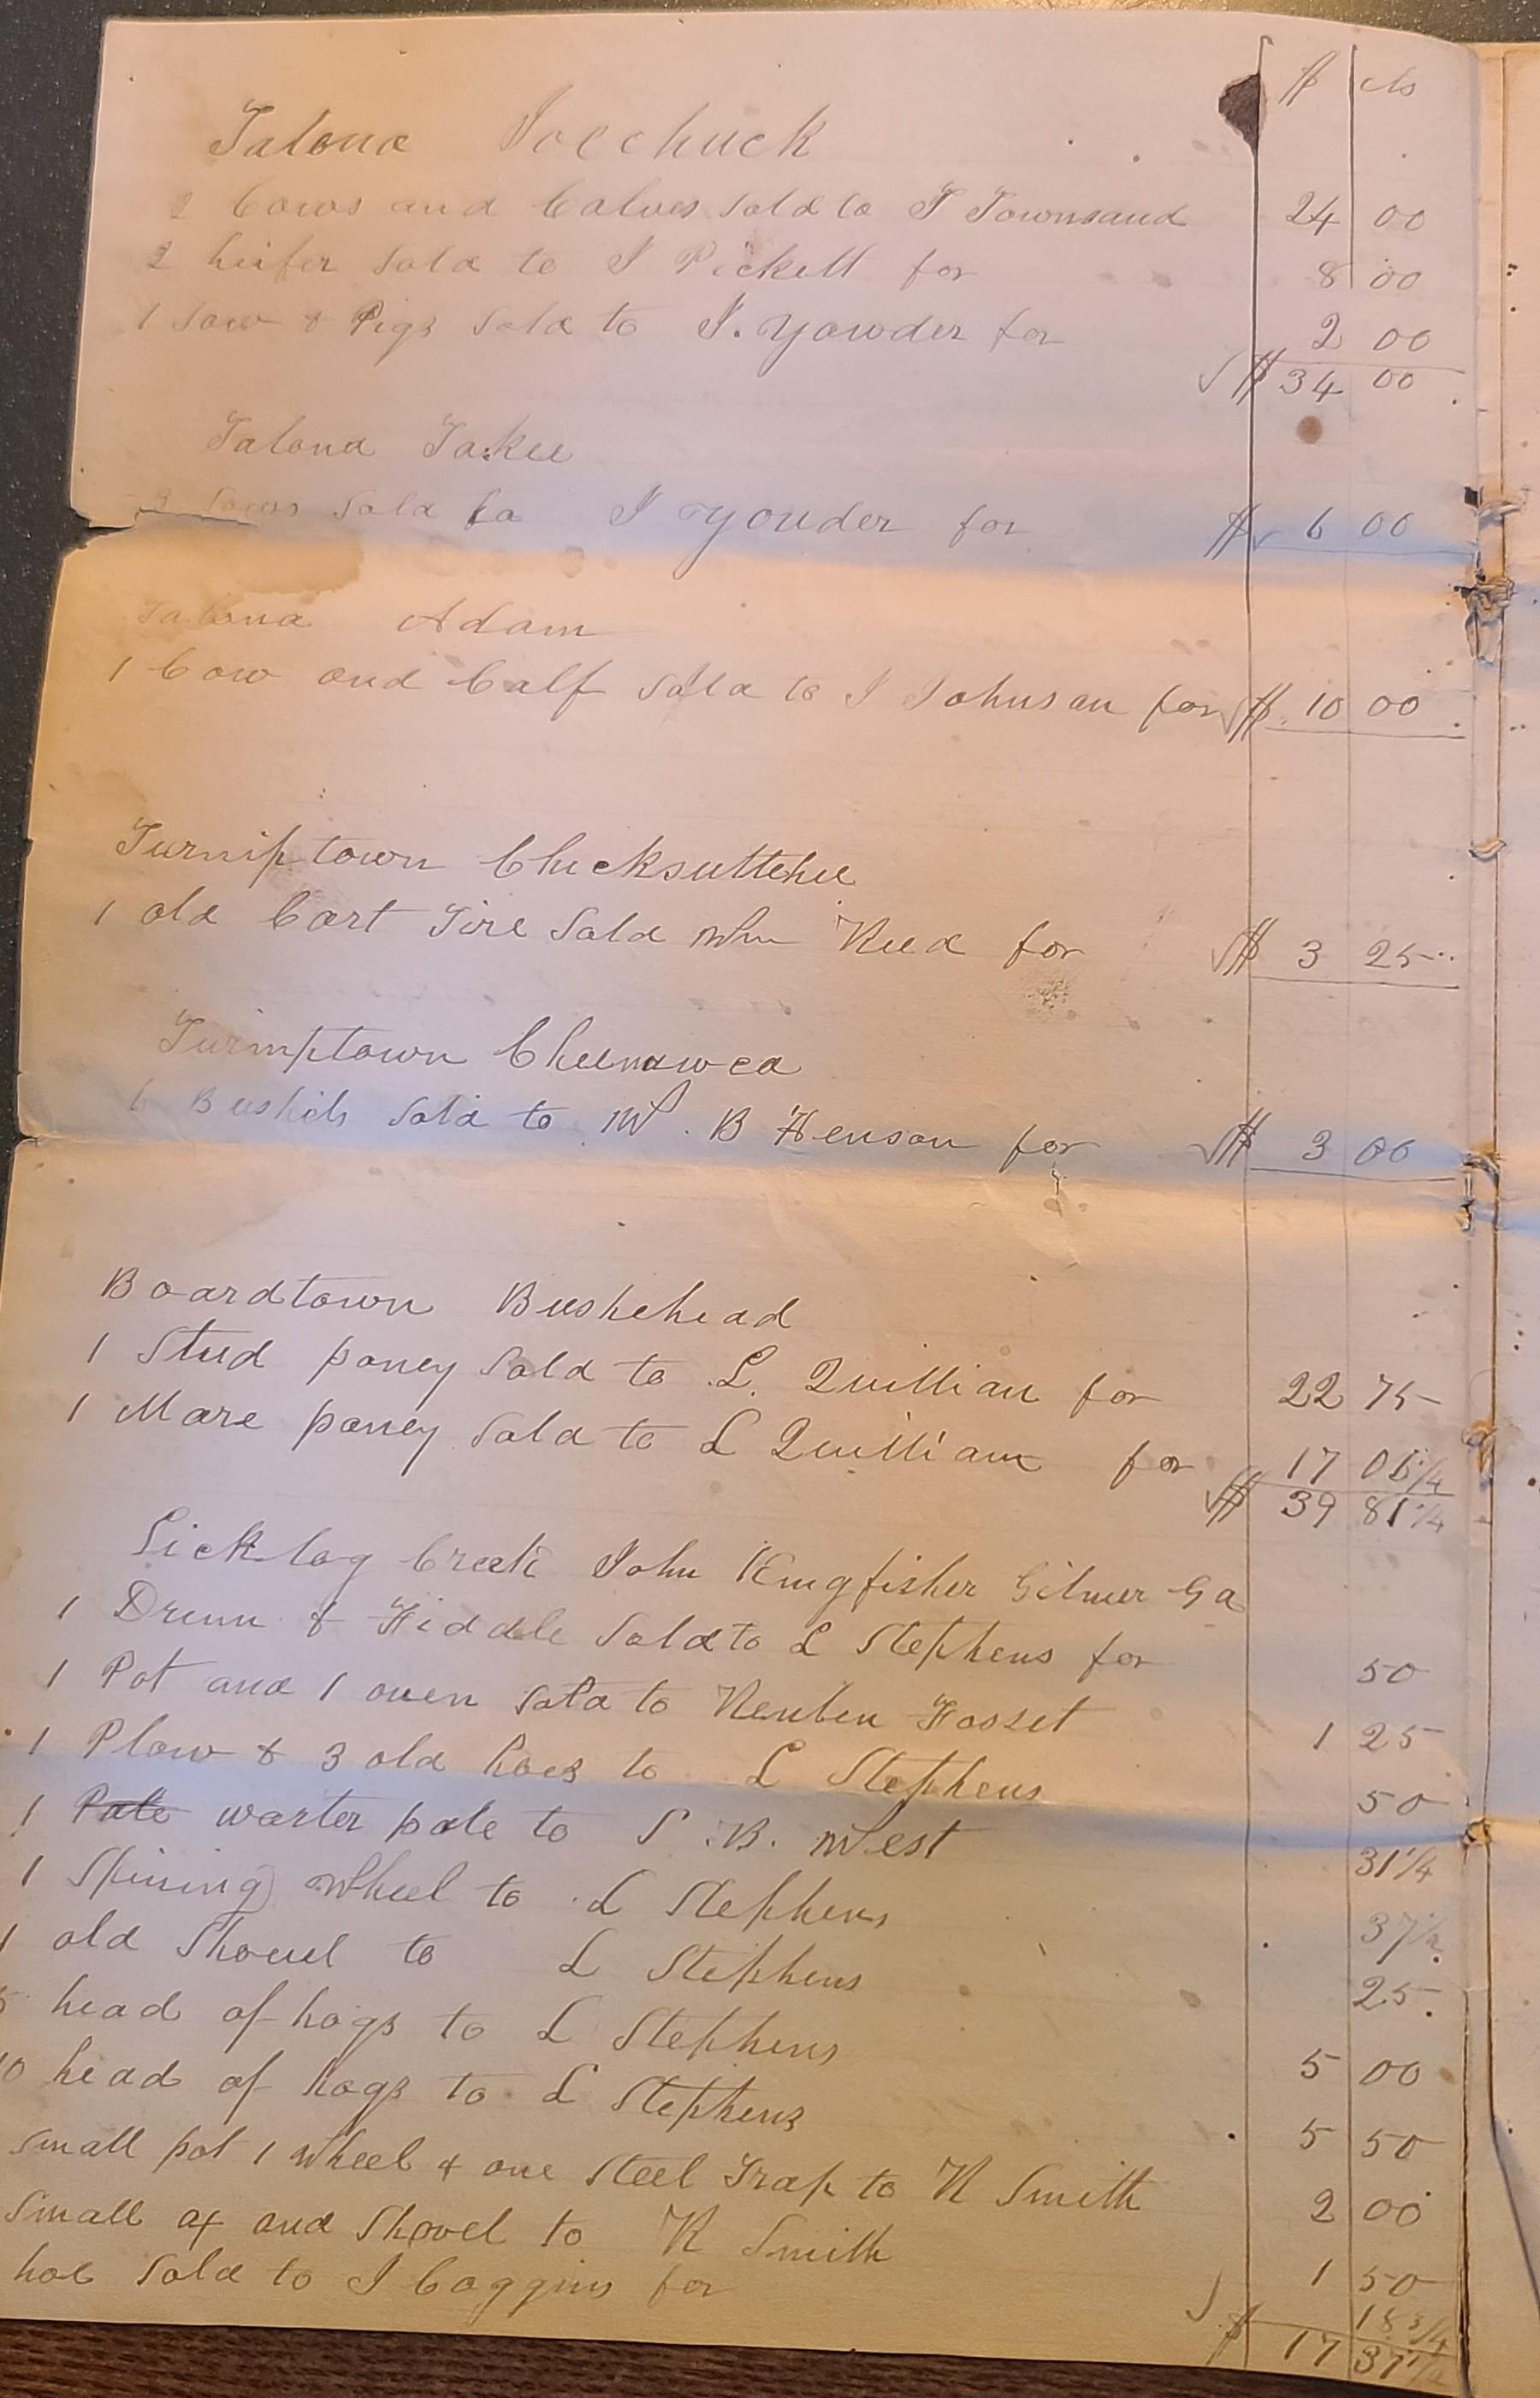 $ cts
Talona Joechuck
2 Cows and Calves Sold to T Townsand 24 00
2 heifer Sold to J Pickett for 8 00
1 Sow & Pigs Sold to J. Yowder for 2 00
$ 34 00
Talona Takee
3 Sows Sold to J Youder for $ 6 00
Talona Adam
1 Cow and Calf Sold to J Johnson for $ 10 00
Turniptown Chucksuttehee
1 old Cart Tire Sold Wm Reed for $ 3 25
Turniptown Cheenawea
6 Bushels Sold to W. B Henson for $ 3 00
Boardtown Bushehead
1 Stud poney Sold to L. Quillian for 22 75
1 Mare poney Sold to L Quilliam for 17 06 1/4
$ 39 81 1/4
Lick log Creek John Kingfisher Gilmer Ga
1 Drum & Fiddle Sold to L Stephens for 50
1 Pot and 1 oven Sold to Reuben Fosset 1 25
1 Plow & 3 old hoes to L Stephens 50
1 Pale warter pale to S. B. West 31 1/4
1 Spining Wheel to L Stephens 37 1/2
1 old Shovel to L Stephens 25
5 head of hogs to L Stephens 5 00
10 head of hogs to L Stephens 5 50
small pot 1 Wheel & one Steel Trap to R Smith 2 00
Small ax and Shovel to R Smith 1 50
hoe Sold to J Coggins for 18 3/4
$ 17 37 1/2